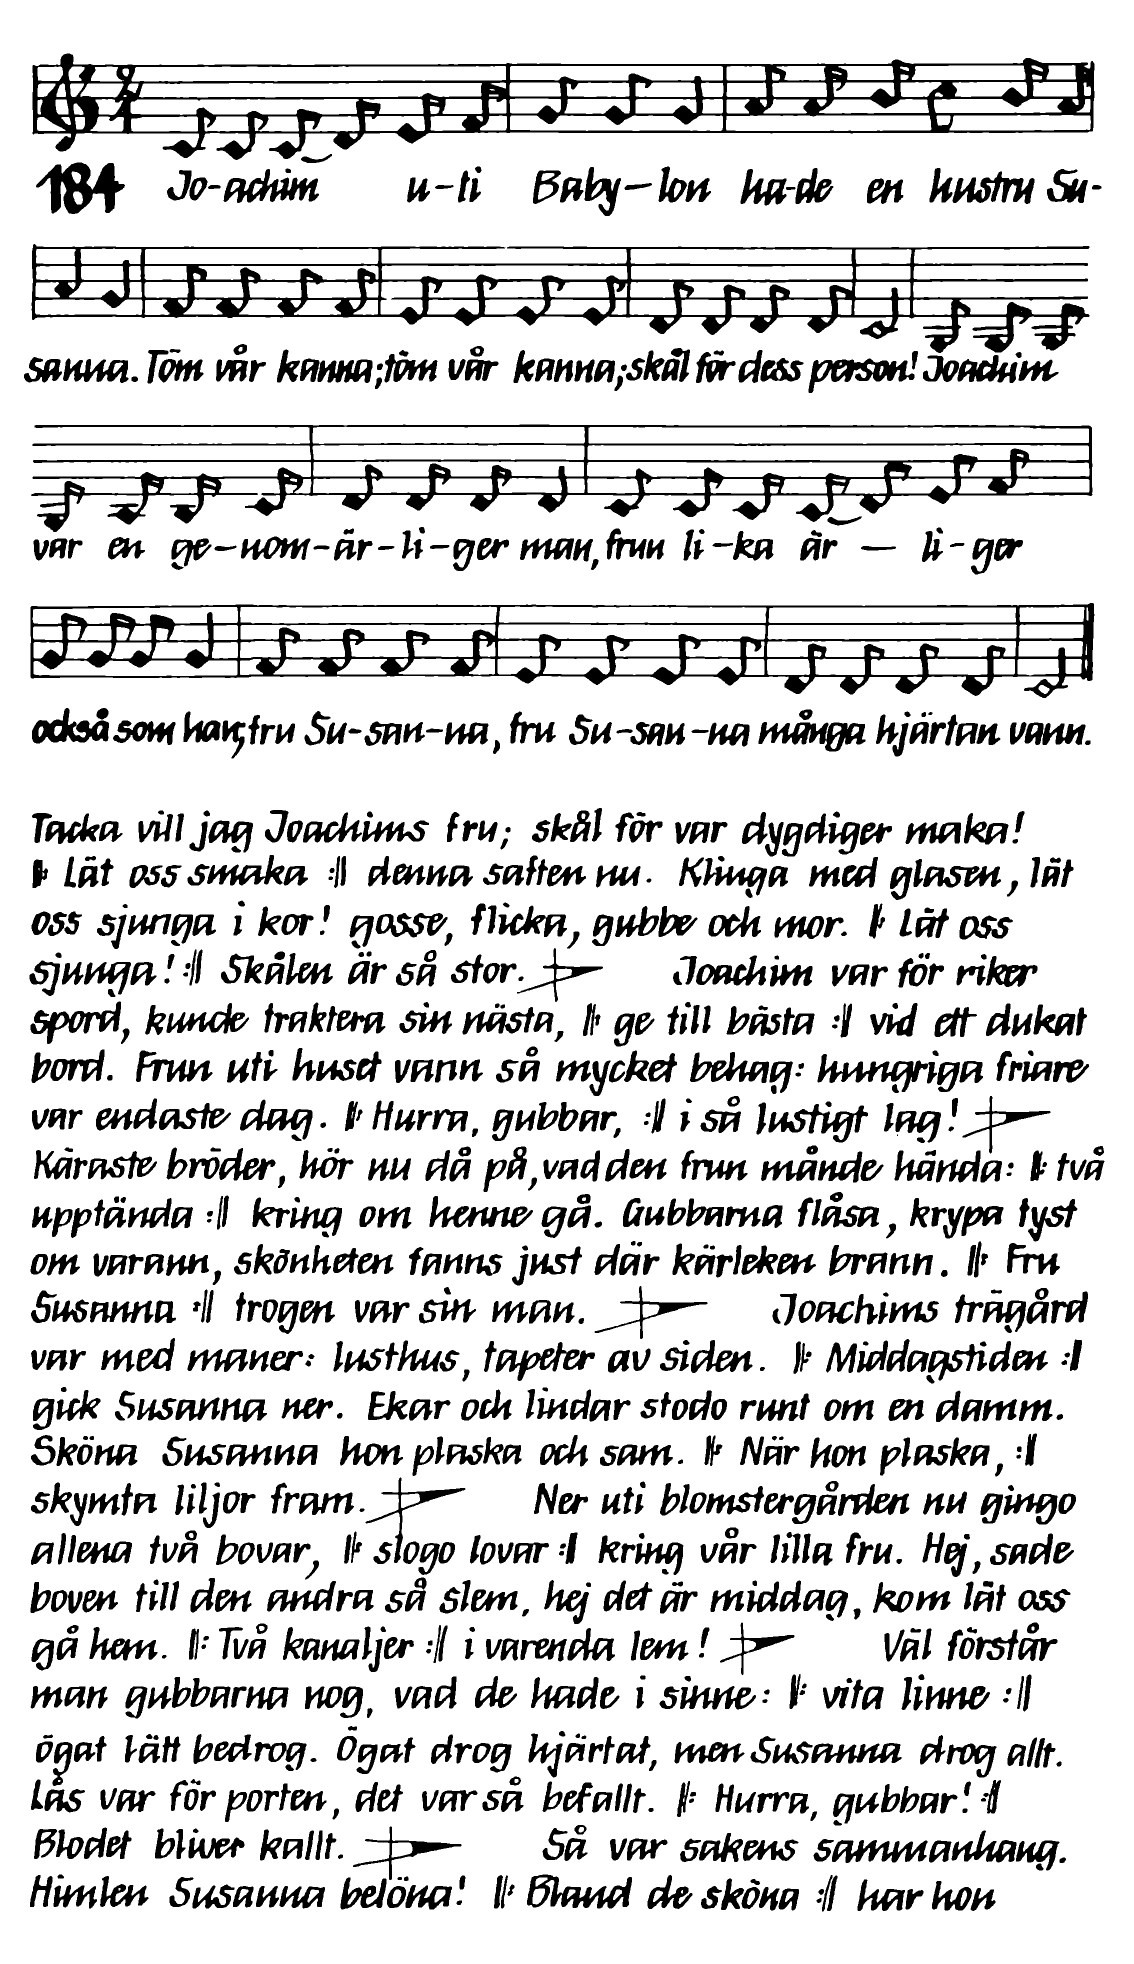 184 Jo-achim u-ti Baby-lon ha-de en hustru Su-
sanna. Töm vår kanna; töm vår kanna; skål för dess person! Joachim
var en ge-nom-är-li-ger man, frun li-ka är - li-ger
också som han; fru Su-san-na, fru Su-san-na många hjärtan vann.
Tacka vill jag Joachims fru; skål för var dygdiger maka!
𝄆 Låt oss smaka 𝄇 denna saften nu. Klinga med glasen, låt
oss sjunga i kor! gosse, flicka, gubbe och mor. 𝄆 Låt oss
sjunga! 𝄇 Skålen är så stor. Joachim var för riker
spord, kunde traktera sin nästa, 𝄆 ge till bästa 𝄇 vid ett dukat
bord. Frun uti huset vann så mycket behag: hungriga friare
var endaste dag. 𝄆 Hurra, gubbar, 𝄇 i så lustigt lag!
Käraste bröder, hör nu då på, vad den frun månde hända: 𝄆 två
upptända 𝄇 kring om henne gå. Gubbarna flåsa, krypa tyst
om varann, skönheten fanns just där kärleken brann. 𝄆 Fru
Susanna 𝄇 trogen var sin man. Joachims trägård
var med maner: lusthus, tapeter av siden. 𝄆 Middagstiden 𝄇
gick Susanna ner. Ekar och lindar stodo runt om en damm.
Sköna Susanna hon plaska och sam. 𝄆 När hon plaska, 𝄇
skymta liljor fram. Ner uti blomstergården nu gingo
allena två bovar, 𝄆 slogo lovar 𝄇 kring vår lilla fru. Hej, sade
boven till den andra så slem, hej det är middag, kom låt oss
gå hem. 𝄆 Två kanaljer 𝄇 i varenda lem! Väl förstår
man gubbarna nog, vad de hade i sinne: 𝄆 vita linne 𝄇
ögat lätt bedrog. Ögat drog hjärtat, men Susanna drog allt.
Lås var för porten, det var så befallt. 𝄆 Hurra, gubbar! 𝄇
Blodet bliver kallt. Så var sakens sammanhang.
Himlen Susanna belöna! 𝄆 Bland de sköna 𝄇 har hon